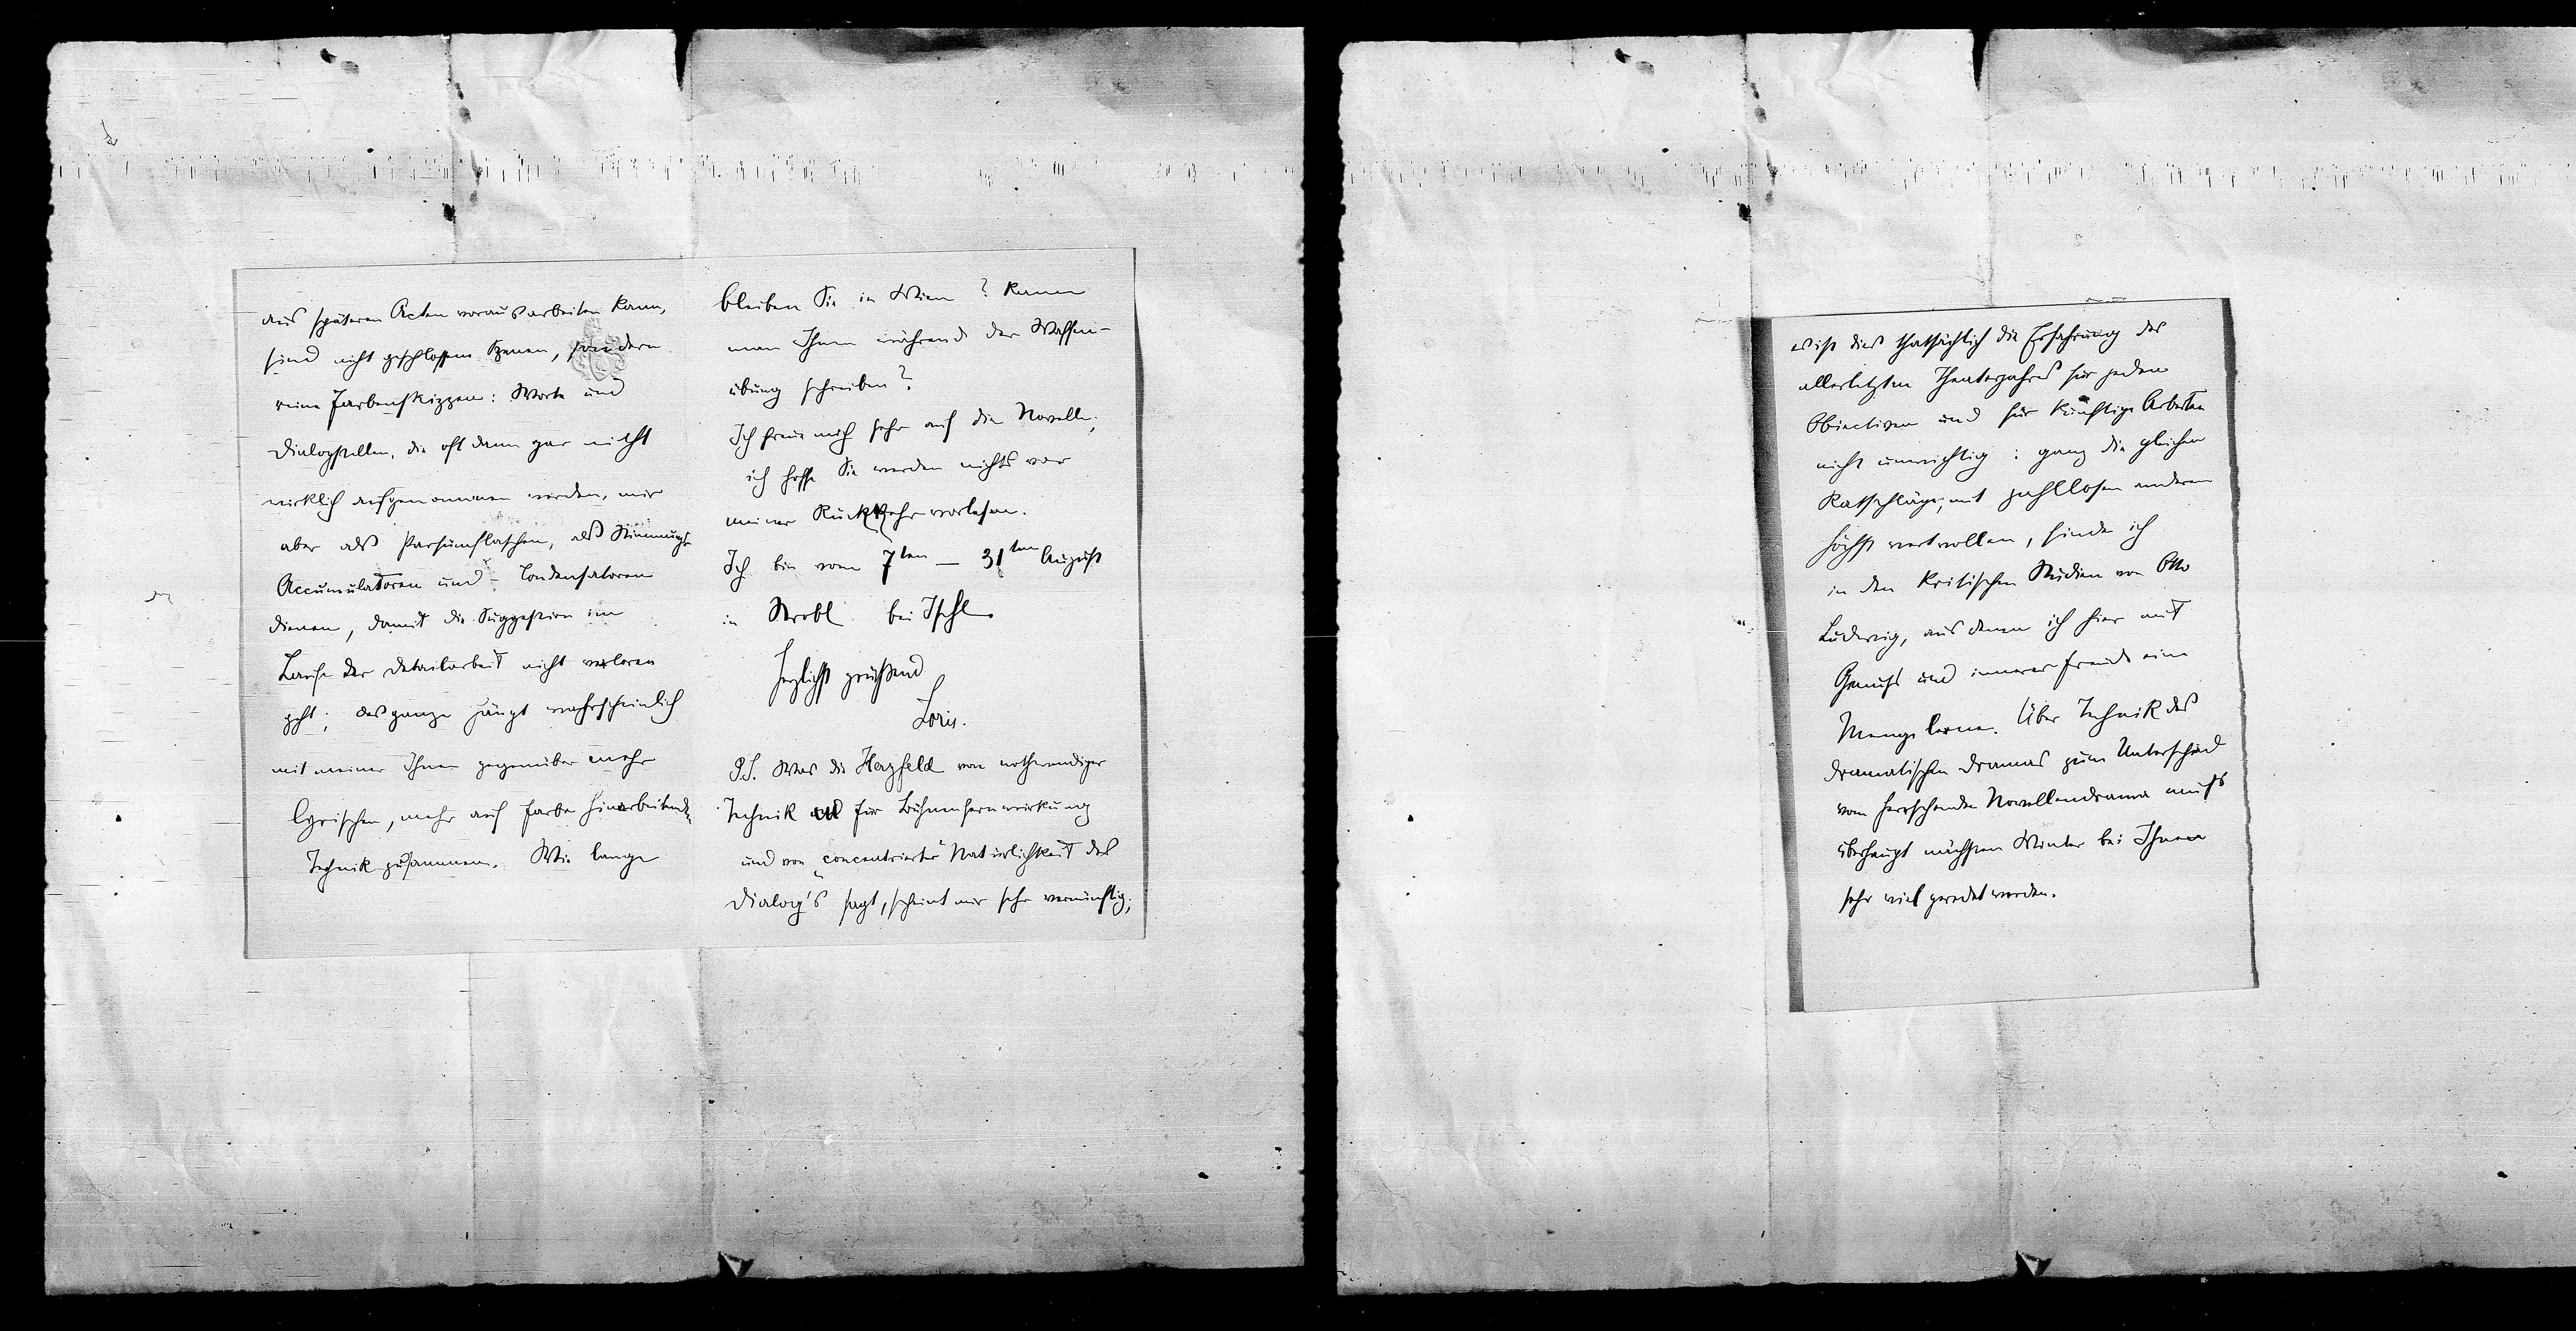 aus späteren Acten vorausarbeiten kann,
sind nicht geschlossene Scenen, sondern
reine Farbenskizzen: Worte und
Dialogstellen, die oft dann gar nicht
wirklich aufgenommen werden, mir
aber als Parfumflaschen, als Stimmungs-
Accumulatoren und – Condensatoren
dienen, damit die Suggestion im
Laufe der Detailarbeit nicht verloren
geht; das ganze hängt wahrscheinlich
mit meiner Ihnen gegenüber mehr
lyrischen, mehr auf Farbe hinarbeitenden
Technik zusammen. Wie lange
bleiben Sie in Wien? Kann
man Ihnen während der Waffen-
übung schreiben?
Ich freue mich sehr auf die Novelle;
ich hoffe Sie werden nichts vor
meiner Rückkehr vorlesen.
Ich bin vom 7ten — 31ten August
in Strobl bei Ischl.
Herzlichst grüßend
Loris.
P.S. Was die Herzfeld von nothwendiger
Technik für Bühnenfernwirkung
und von „concentrierter“ Natürlichkeit des
Dialog's sagt, scheint mir sehr vernünftig;
es ist dies thatsächlich die Erfahrung des
allerletzten Theaterjahres für jeden
Objectiven und für künftige Arbeiten
nicht unwichtig: ganz die gleichen
Ratschläge, mit zahllosen anderen
höchst wertvollen, finde ich
in den kritischen Studien von Otto
Ludwig, aus denen ich hier mit
Genuss und innerer Freude eine
Menge lerne. Über Technik des
dramatischen Dramas zum Unterschied
vom herrschenden Novellendrama muss
überhaupt nächsten Winter bei Ihnen
sehr viel geredet werden.